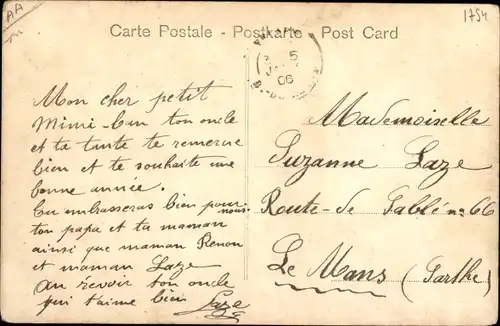 AA
1754
Carte Postale - Postkarte - Post Card
5
06
Mon cher petit
Mimi ton oncle
et ta tante te remercie
bien et te souhaite une
bonne année.
Tu embrasseras bien pour nous
ton papa et ta maman
ainsi que maman Renon
et maman Laze
au revoir ton oncle
qui t'aime bien Laze
Mademoiselle
Suzanne Laze
Route de Sablé no 66
Le Mans (Sarthe)